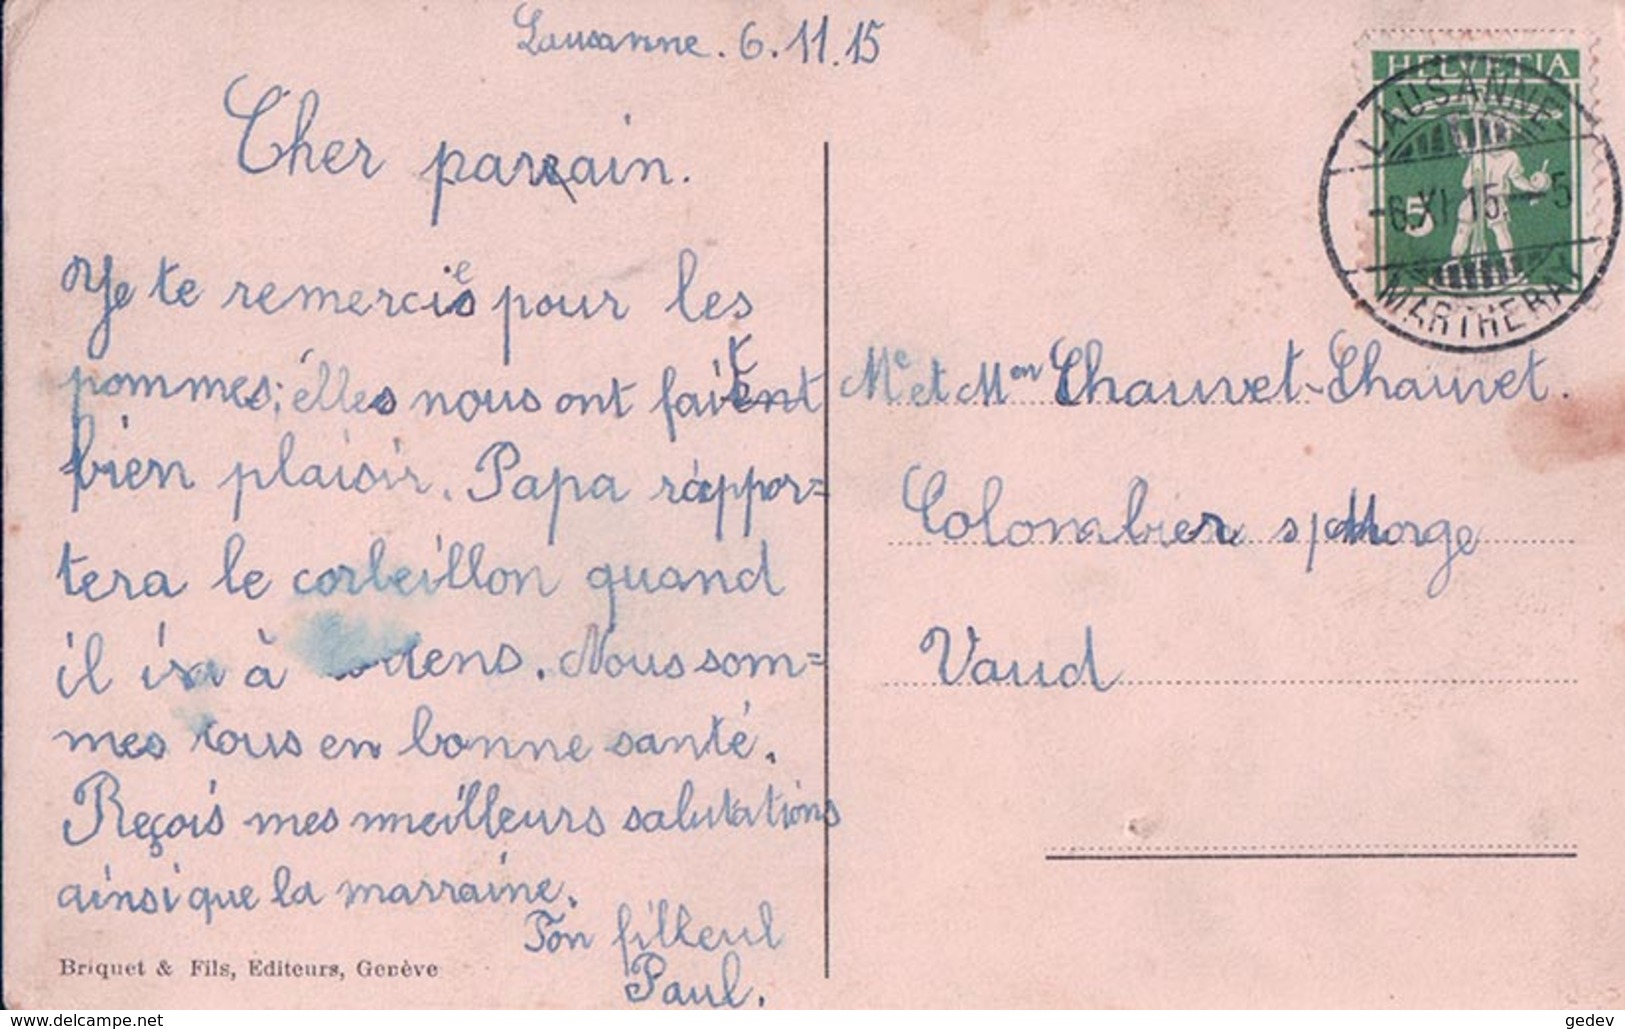 Lausanne. 6.11.15
Cher parrain.
Je te remercie pour les
pommes; élles nous ont fait
bien plaisir. Papa rappor=
tera le corbeillon quand
il ira à
. Nous som=
mes tous en bonne santé.
Reçois mes meilleurs salutations
ainsi que la marraine.
Ton filleul
Paul.
Briquet & Fils, Editeurs, Genève
HELVETIA
5
LAUSANNE
-6.XI.15.-5
MARTHERAY
Me et Mon Chauvet-Chauvet.
Colombier s/Morge
Vaud
www.delcampe.net
gedev